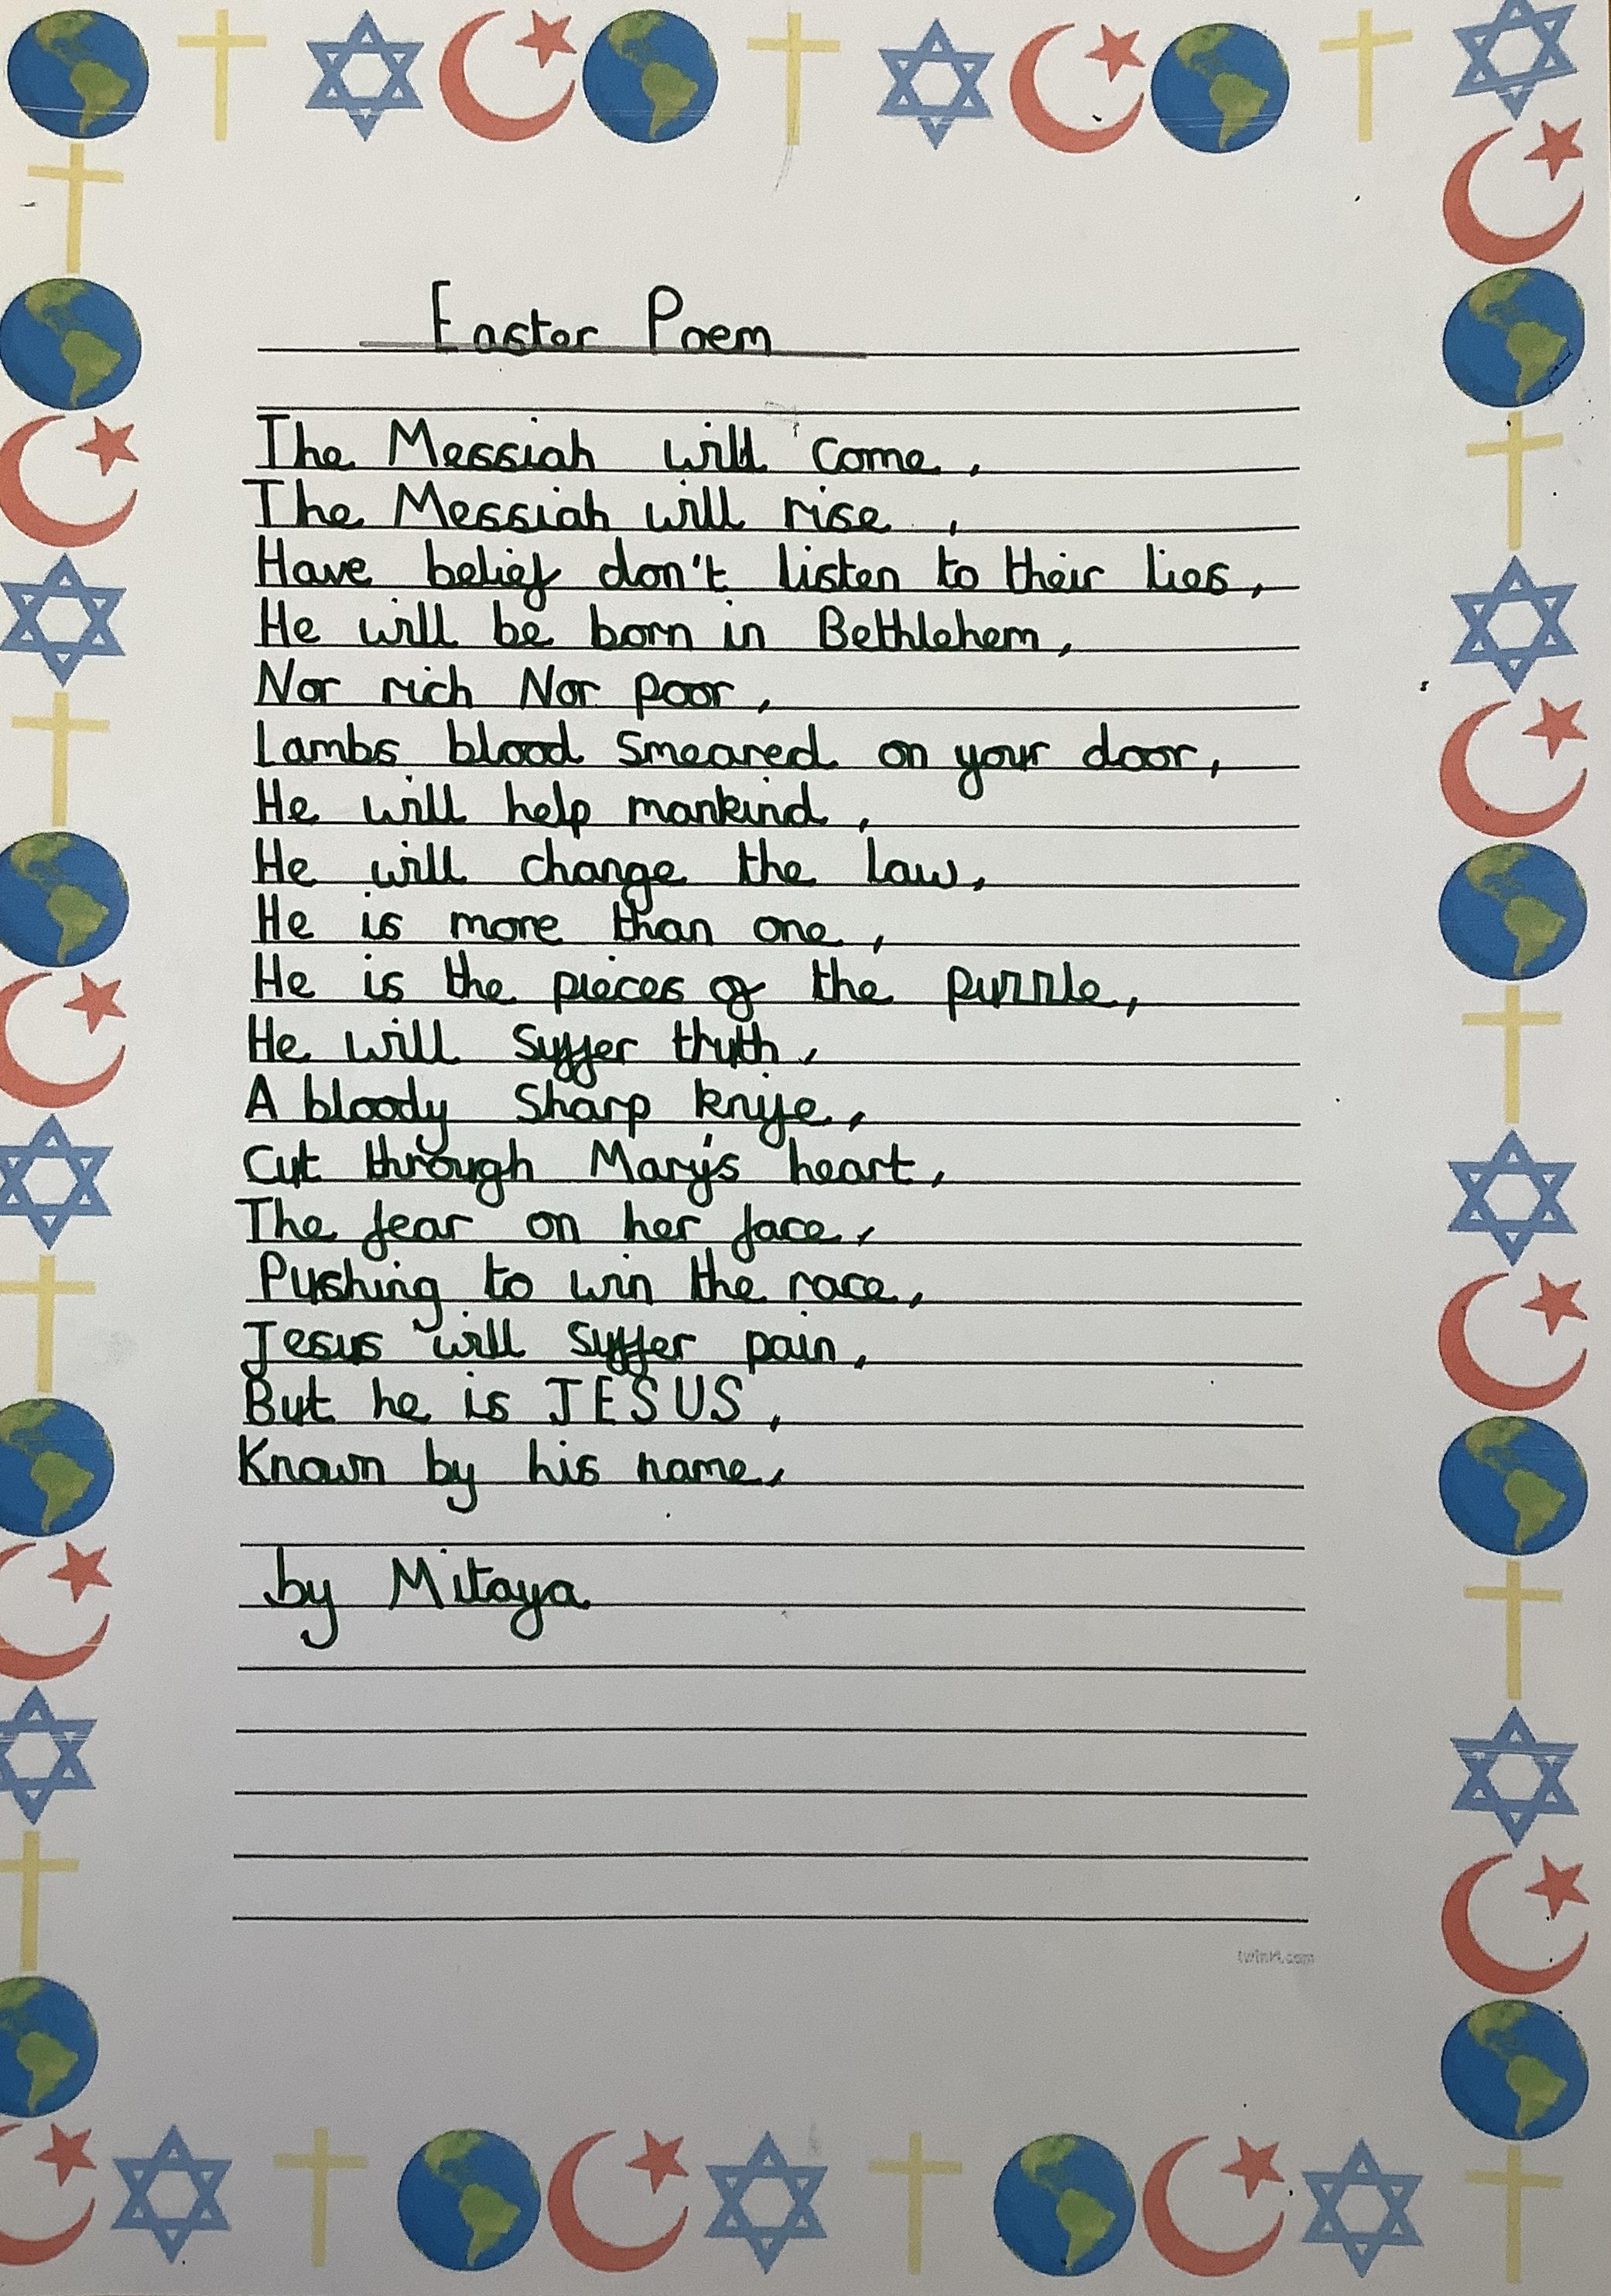 Easter Poem
The Messiah will come,
The Messiah will rise,
Have belief don't listen to their lies,
He will be born in Bethlehem,
Nor rich Nor poor,
Lambs blood smeared on your door,
He will help mankind,
He will change the law,
He is more than one,
He is the pieces of the puzzle,
He will suffer truth,
A bloody sharp knife,
Cut through Mary's heart,
The fear on her face,
Pushing to win the race,
Jesus will suffer pain,
But he is JESUS,
Known by his name,
by Mitaya
twinkl.com